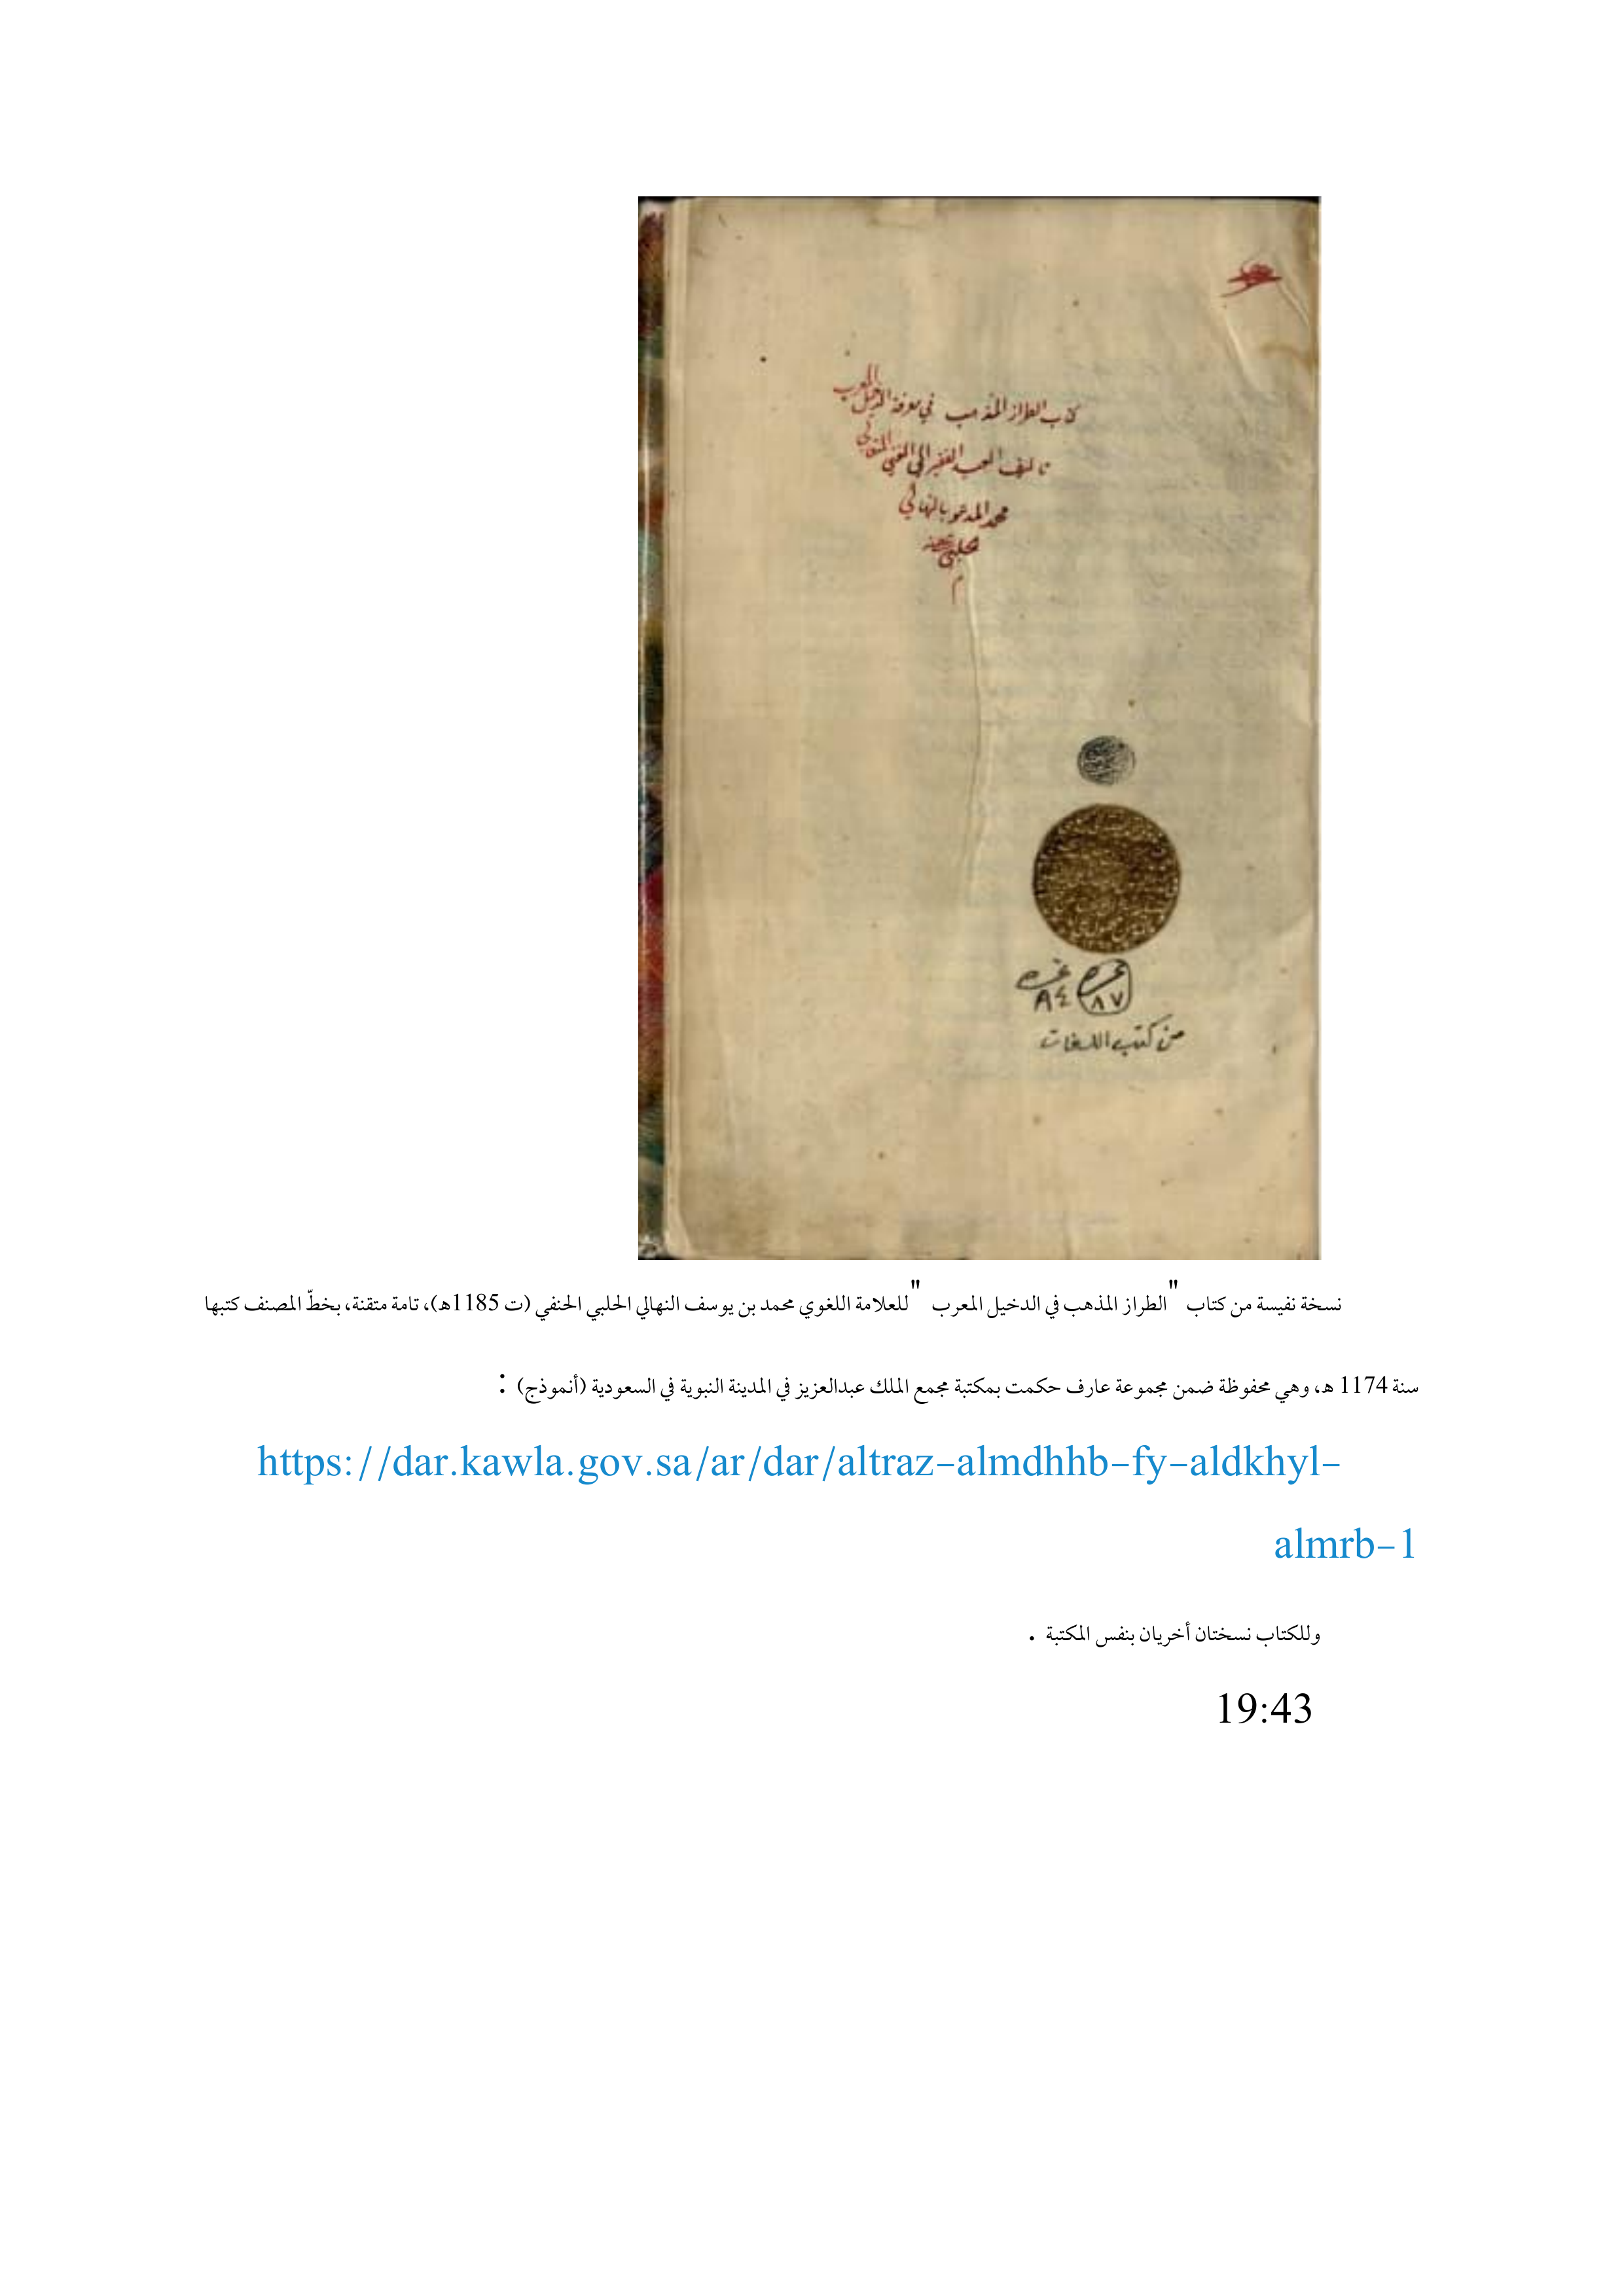 كتاب الطراز المذهب في معرفة الدخيل المعرب
تاليف العبد الفقير الى الغني المتعالي
محمد المدعو بالنهالي
نمره ٨٧ نمره ٨٤
من كتب اللغات
نسخة نفيسة من كتاب "الطراز المذهب في الدخيل المعرب" للعلامة اللغوي محمد بن يوسف النهالي الحلبي الحنفي (ت 1185هـ)، تامة متقنة، بخطّ المصنف كتبها
سنة 1174 هـ، وهي محفوظة ضمن مجموعة عارف حكمت بمكتبة مجمع الملك عبدالعزيز في المدينة النبوية في السعودية (أنموذج) :
https://dar.kawla.gov.sa/ar/dar/altraz-almdhhb-fy-aldkhyl-
almrb-1
وللكتاب نسختان أخريان بنفس المكتبة .
19:43